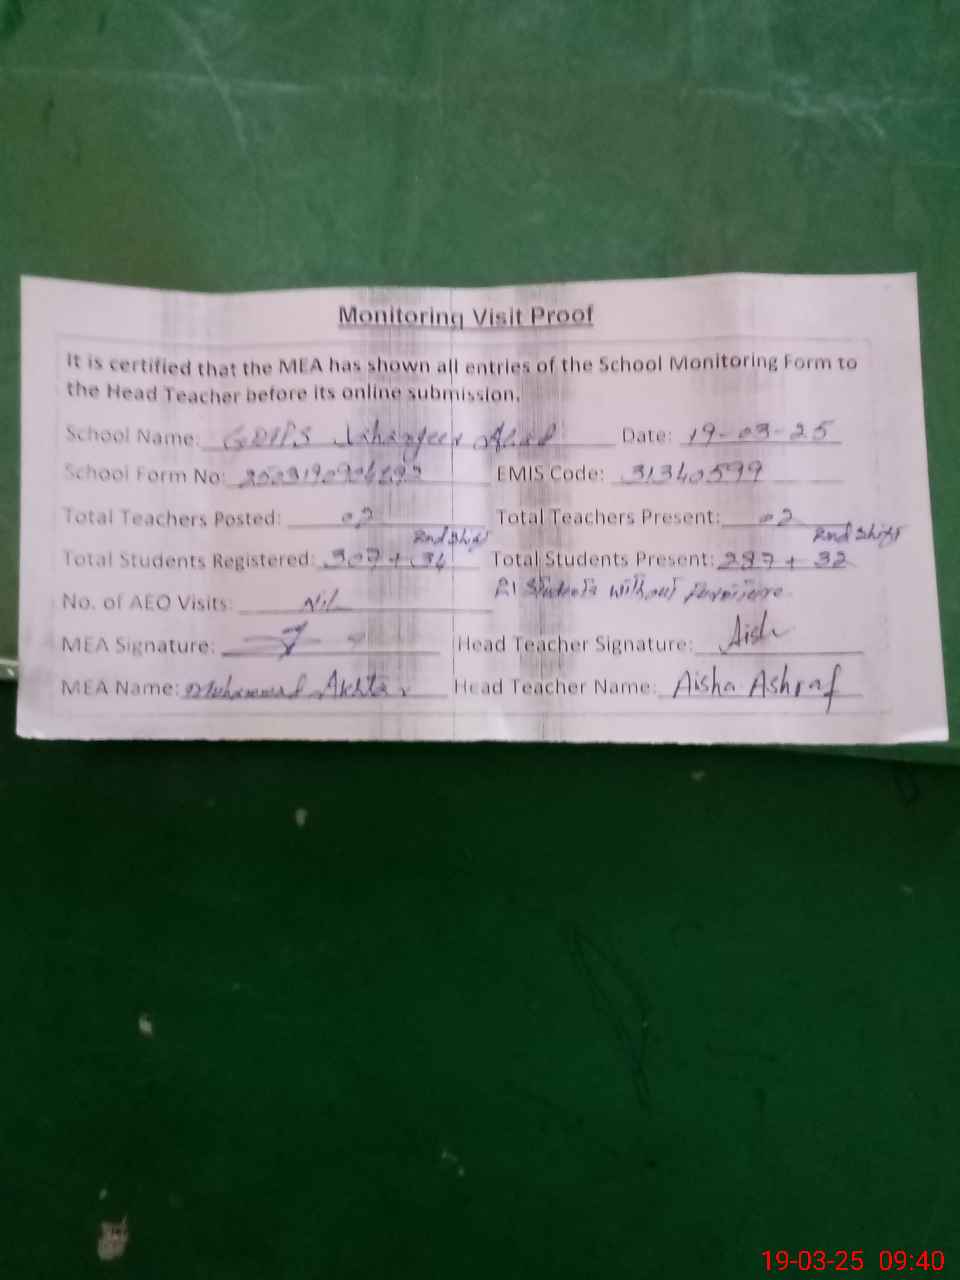 Monitoring Visit Proof
It is certified that the MEA has shown all entries of the School Monitoring Form to
the Head Teacher before its online submission.
School Name: Jahangeer Abad Date: 19-03-25
School Form No: EMIS Code: 31340599
Total Teachers Posted: 02 Total Teachers Present: 02
2nd Shift 2nd Shift
Total Students Registered: 307 + 34 Total Students Present: 287 + 32
No. of AEO Visits: Nil Students without
MEA Signature: Head Teacher Signature: Aish
MEA Name: Muhammad Akhtar Head Teacher Name: Aisha Ashraf
19-03-25 09:40